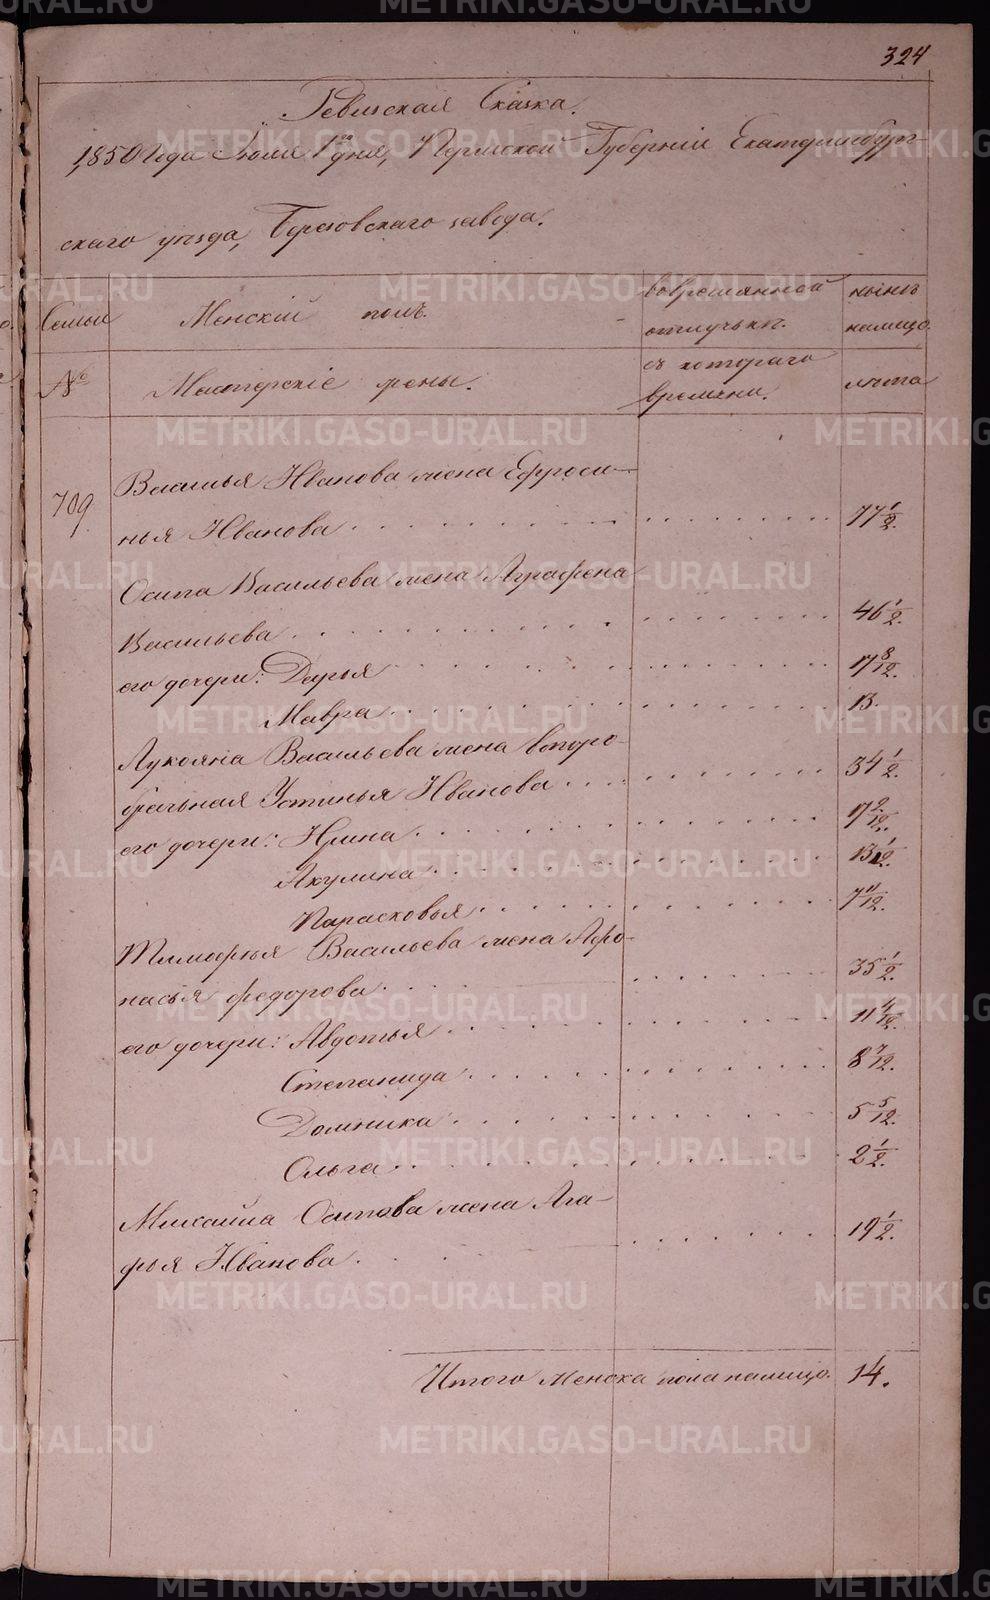 324
Ревизская Сказка.
1850 года Июля 1го дня, Пермской Губернiи Екатеринбург-
скаго уѣзда, Березовскаго завода.
Семьи Женскiй полъ. во временной отлучкѣ. нынѣ налицо.
№ Мастерскiе жены. съ котораго времени. лѣта
709 Василья Иванова жена Ефроси-
нья Иванова 77 1/2.
Осипа Васильева жена Аграфена
Васильева 46 1/2.
его дочери: Дарья 17 8/12.
Мавра 13.
Лукояна Васильева жена второ-
брачьная Устинья Иванова 34 1/2.
его дочери: Ирина 17 2/12.
Акулина 13 1/2.
Парасковья 7 11/12.
Тимофья Васильева жена Афо-
насья федорова 35 1/2.
его дочери: Авдотья 11 4/12.
Степанида 8 7/12.
Домника 5 5/12.
Ольга 2 1/2.
Михайла Осипова жена Ага-
фья Иванова 19 1/2.
Итого женска пола налицо. 14.
METRIKI.GASO-URAL.RU